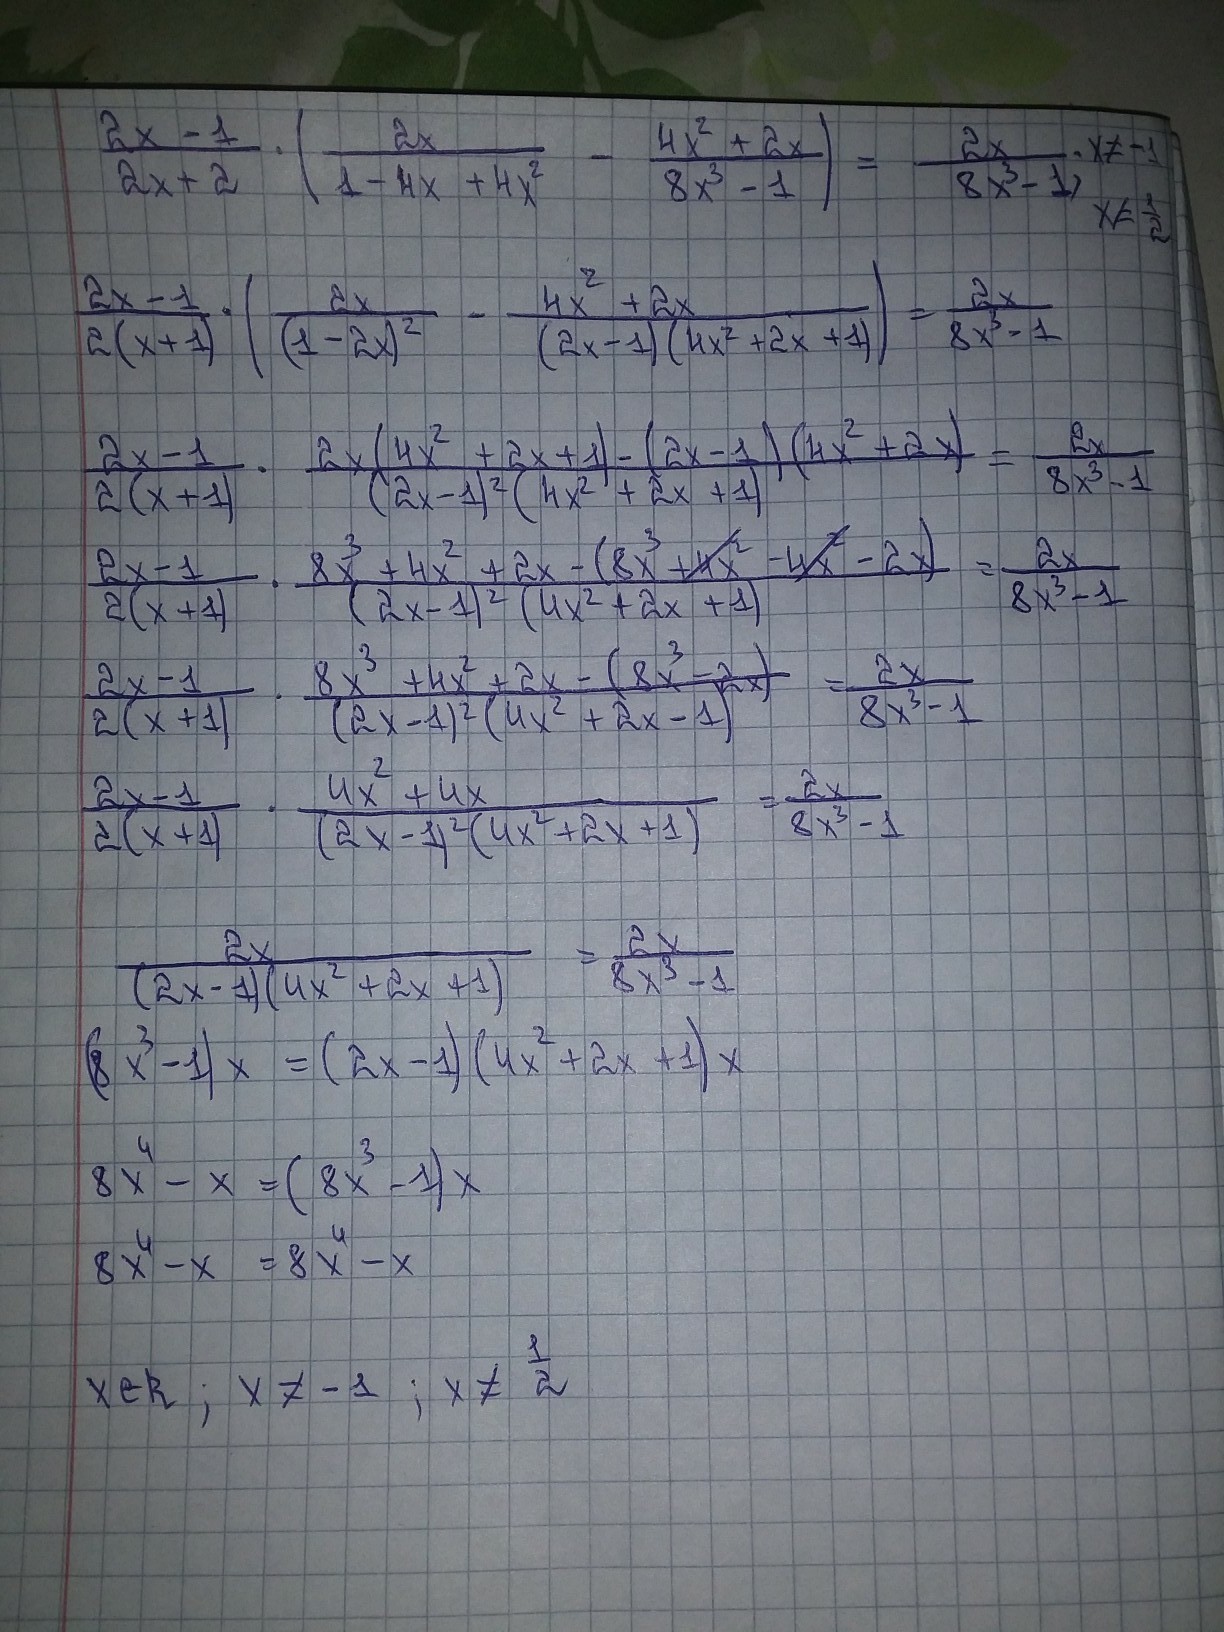 (2x-1)/(2x+2) · (2x/(1-4x+4x²) - (4x²+2x)/(8x³-1)) = 2x/(8x³-1), x≠-1
x≠1/2
(2x-1)/(2(x+1)) · (2x/(1-2x)² - (4x²+2x)/((2x-1)(4x²+2x+1))) = 2x/(8x³-1)
(2x-1)/(2(x+1)) · (2x(4x²+2x+1)-(2x-1)(4x²+2x))/((2x-1)²(4x²+2x+1)) = 2x/(8x³-1)
(2x-1)/(2(x+1)) · (8x³+4x²+2x-(8x³+4x²-4x²-2x))/((2x-1)²(4x²+2x+1)) = 2x/(8x³-1)
(2x-1)/(2(x+1)) · (8x³+4x²+2x-(8x³-2x))/((2x-1)²(4x²+2x-1)) = 2x/(8x³-1)
(2x-1)/(2(x+1)) · (4x²+4x)/((2x-1)²(4x²+2x+1)) = 2x/(8x³-1)
2x/((2x-1)(4x²+2x+1)) = 2x/(8x³-1)
(8x³-1)x = (2x-1)(4x²+2x+1)x
8x⁴-x = (8x³-1)x
8x⁴-x = 8x⁴-x
x∈R ; x≠-1 ; x≠1/2